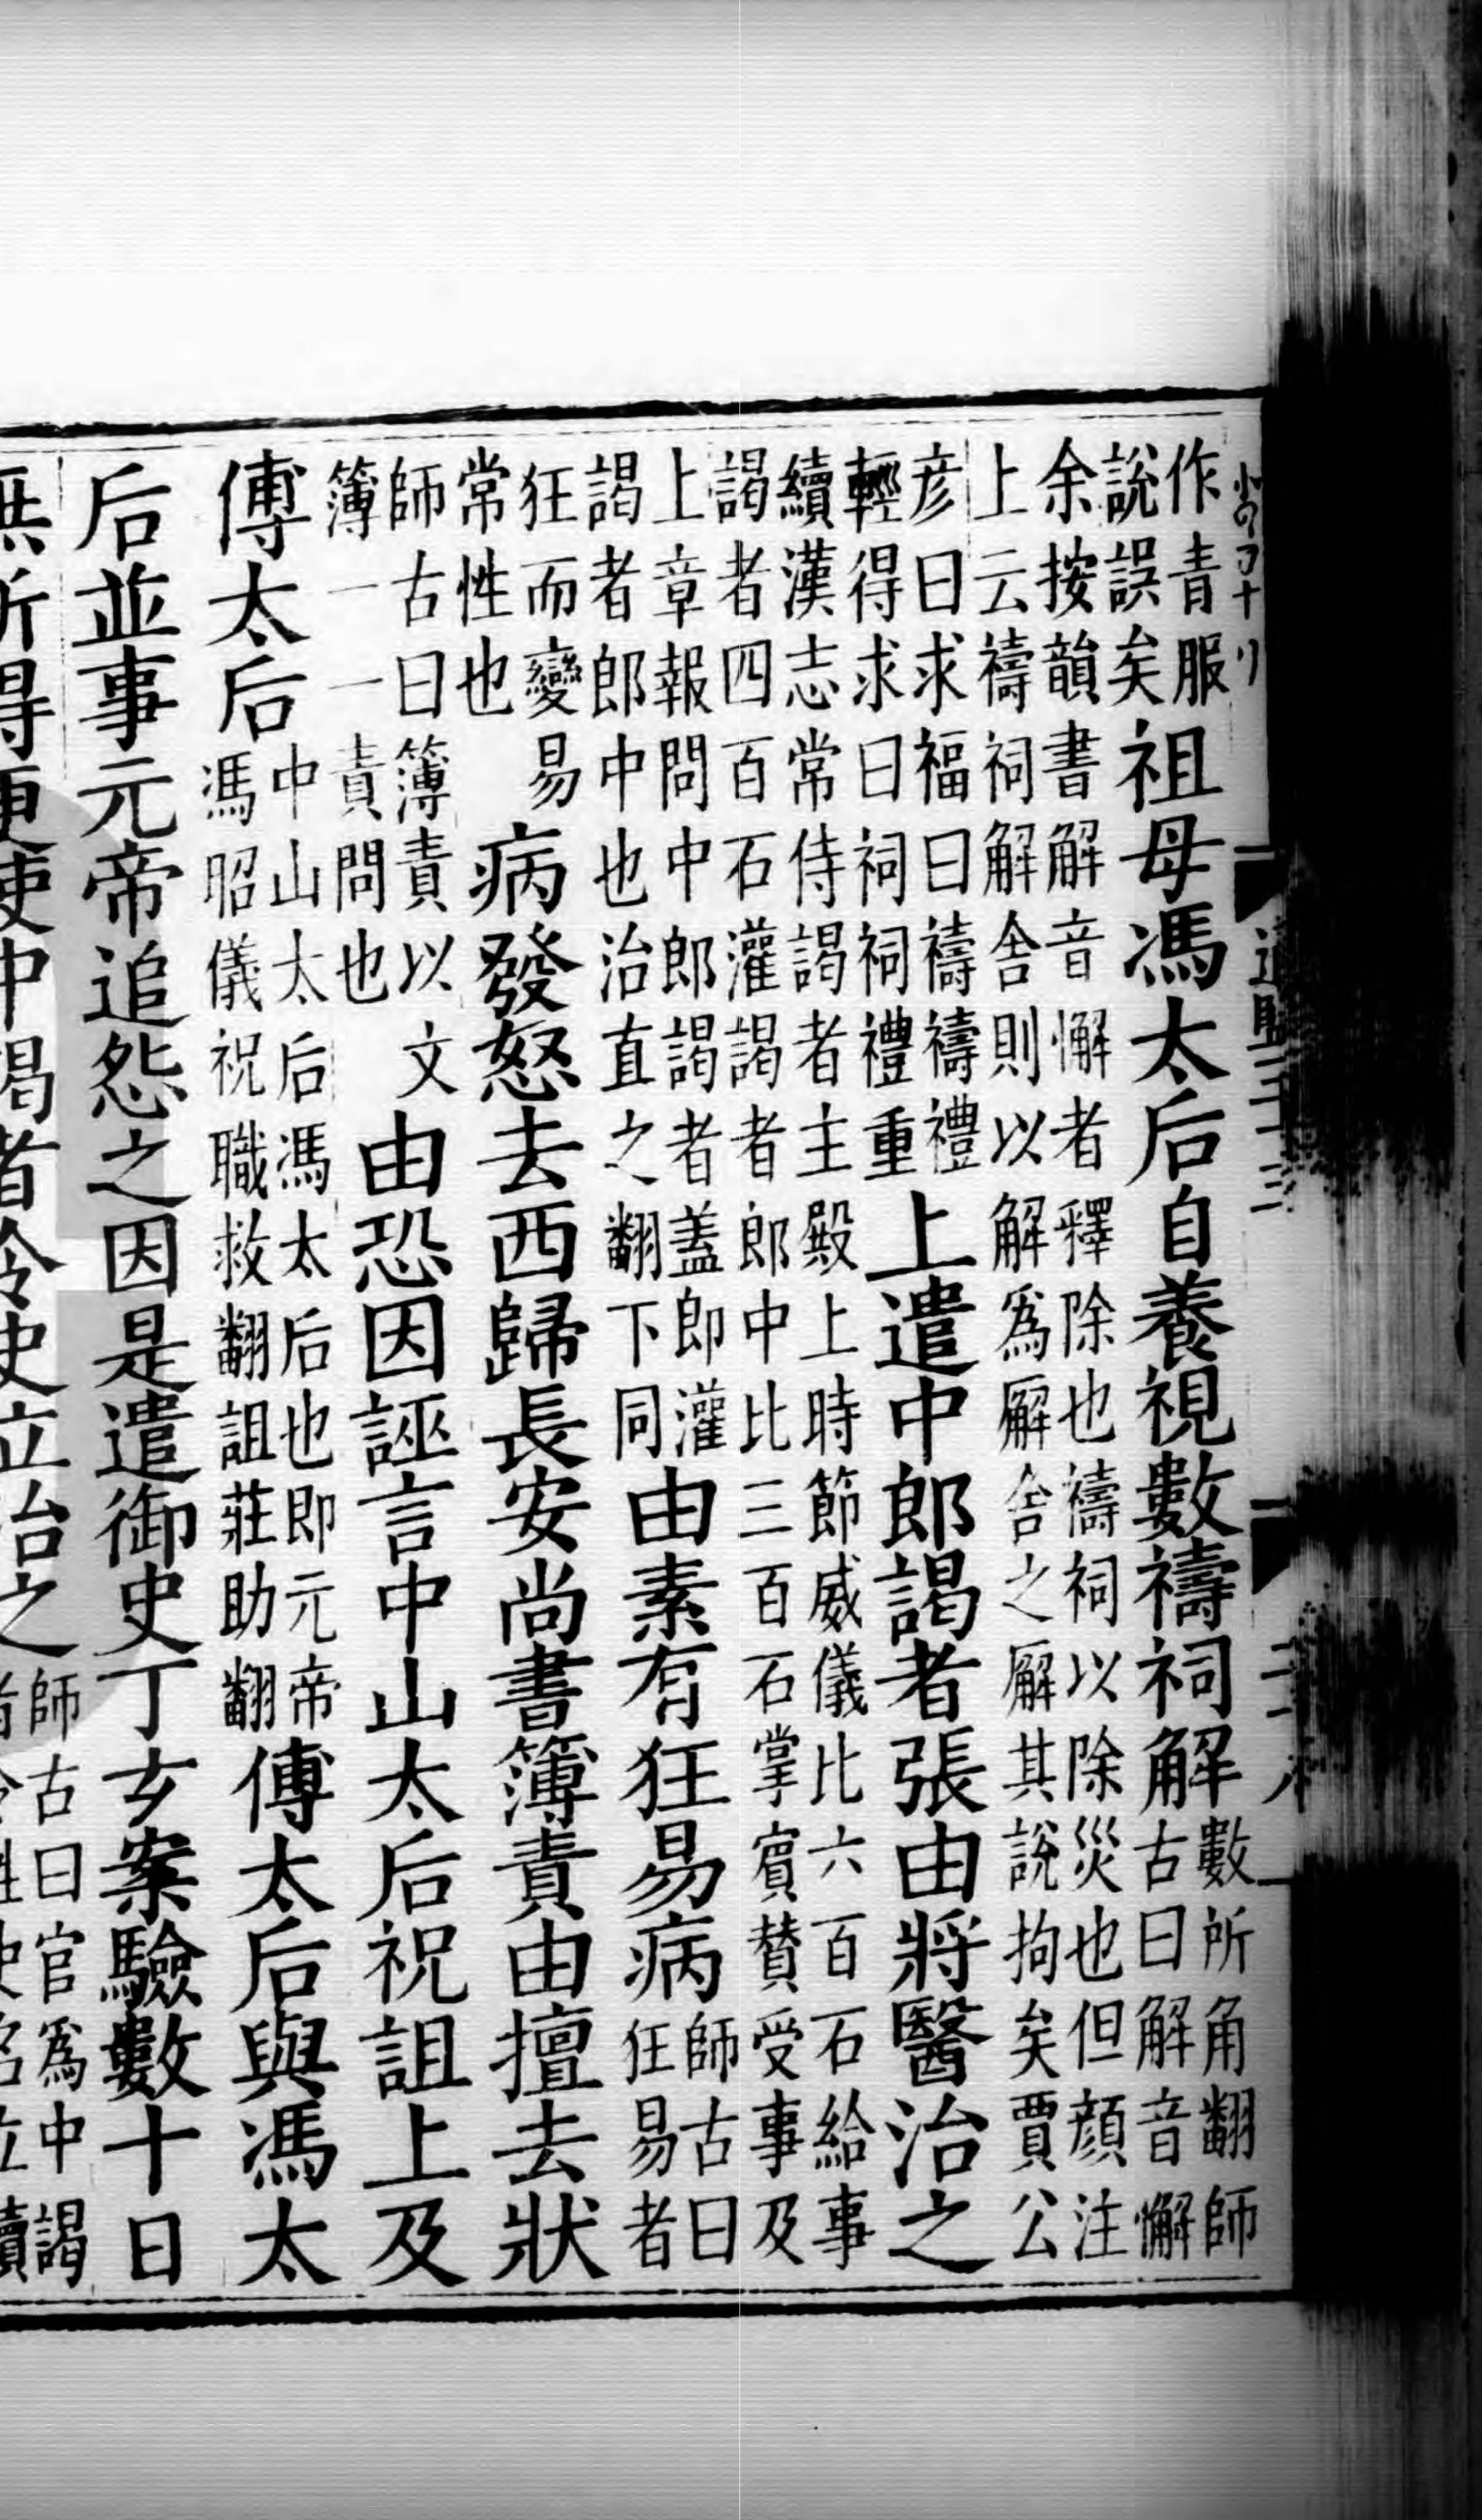 作青服
說誤矣
祖母馮太后自養視數禱祠解
數所角翻師
古曰解音懈
余按韻書解音懈者釋除也禱祠以除災也但顏注
上云禱祠解舍則以解爲廨舍之廨其說拘矣賈公
彦曰求福曰禱禱禮
輕得求曰祠祠禮重
上遣中郎謁者張由將醫治之
續漢志常侍謁者主殿上時節威儀比六百石給事
謁者四百石灌謁者郎中比三百石掌賓贊受事及
上章報問中郎謁者蓋即灌
謁者郎中也治直之翻下同
由素有狂易病
師古曰
狂易者
狂而變易
常性也
病發怒去西歸長安尚書簿責由擅去狀
師古曰簿責以文
簿一一責問也
由恐因誣言中山太后祝詛上及
傅太后
中山太后馮太后也即元帝
馮昭儀祝職救翻詛莊助翻
傅太后與馮太
后並事元帝追怨之因是遣御史丁玄案驗數十日
無所得更使中謁者令史立治之
師古曰官爲中謁